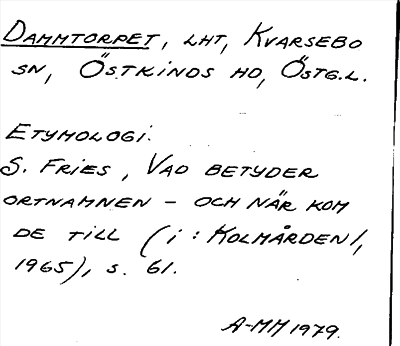 DAMMTORPET, LHT, KVARSEBO
SN, ÖSTKINDS HD, ÖSTG.L.
ETYMOLOGI:
S. FRIES, VAD BETYDER
ORTNAMNEN – OCH NÄR KOM
DE TILL (i: KOLMÅRDEN/,
1965), S. 61.
A-MM 1979.